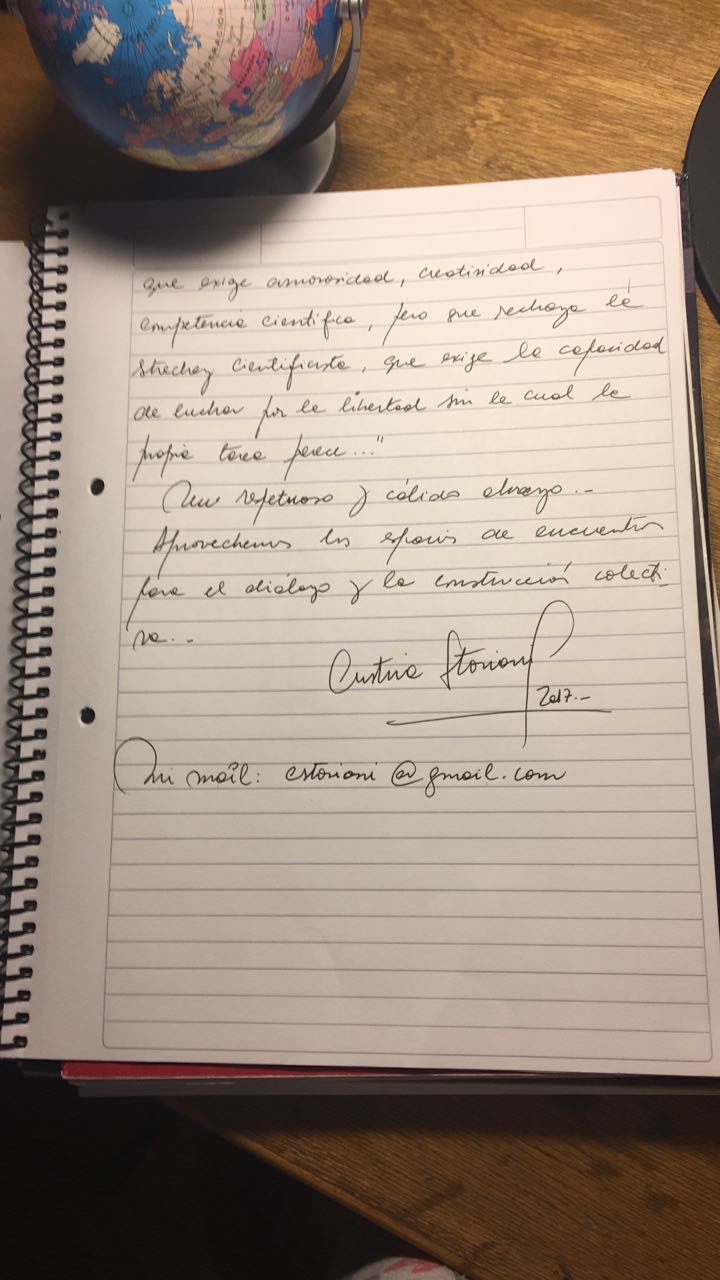 que exige amorosidad, creatividad,
competencia científica, pero que rechaza la
strechez cientificista, que exige la capacidad
de luchar por la libertad sin la cual la
propia tarea perece..."
Un respetuoso y cálido abrazo.-
Aprovechemos los espacios de encuentro
para el diálogo y la construcción colecti-
va.-
Cristina Storioni
2017.-
Mi mail: cstorioni@gmail.com